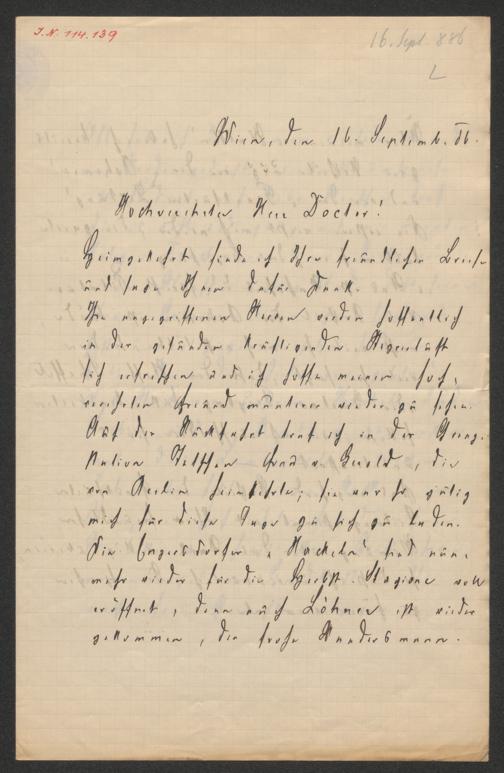 J.N. 114.139
16. Sept. 886
L
Wien, den 16. Septemb. 86.
Hochverehrter Herr Doctor!
Heimgekehrt finde ich Ihren freundlichen Brief
und sage Ihnen dafür Dank.
Ihre angegriffenen Nerven werden hoffentlich
in der gesunden kräftigenden Alpenluft
sich erfrischen und ich hoffe meinen hoch-
verehrten Freund munterer wieder zu sehen.
Auf der Rückfahrt traf ich in der Grenz-
station Frau von Gerold, die
von Berlin heimkehrte; sie war so gütig
mich für diese Tage zu sich zu laden.
Die Enzersdorfer sind nun-
mehr wieder für die Herbst-Stagione voll
eröffnet, denn auch Löhner ist wieder
gekommen, der frohe Wandersmann.